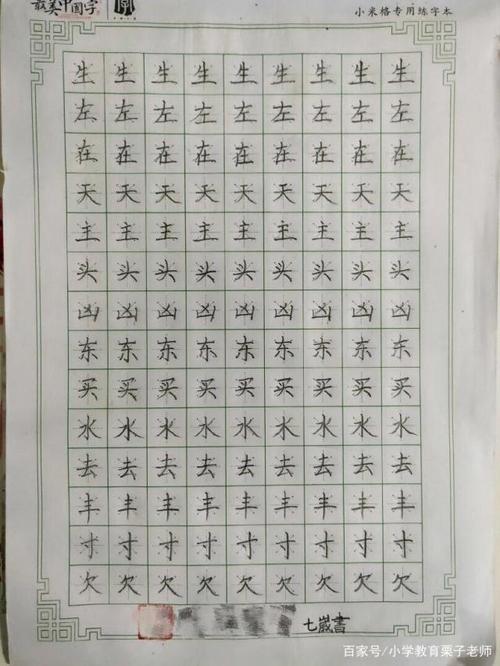 最美中国字 小米格专用练字本
生生生生生生生生生
左左左左左左左左左
在在在在在在在在在
天天天天天天天天天
主主主主主主主主主
头头头头头头头头头
凶凶凶凶凶凶凶凶凶
东东东东东东东东东
买买买买买买买买买
水水水水水水水水水
去去去去去去去去去
丰丰丰丰丰丰丰丰丰
寸寸寸寸寸寸寸寸寸
欠欠欠欠欠欠欠欠欠
七歲書
百家号/小学教育栗子老师